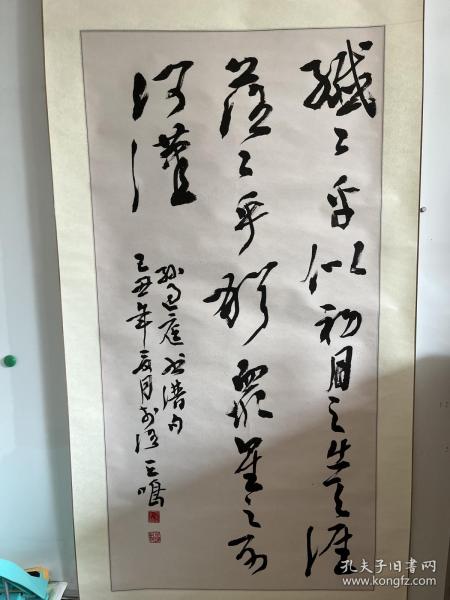 纤纤乎似初月之出天涯
落落乎犹众星之列
河汉
孙过庭书谱句
己丑年
孔夫子旧书网
www.kongfz.com